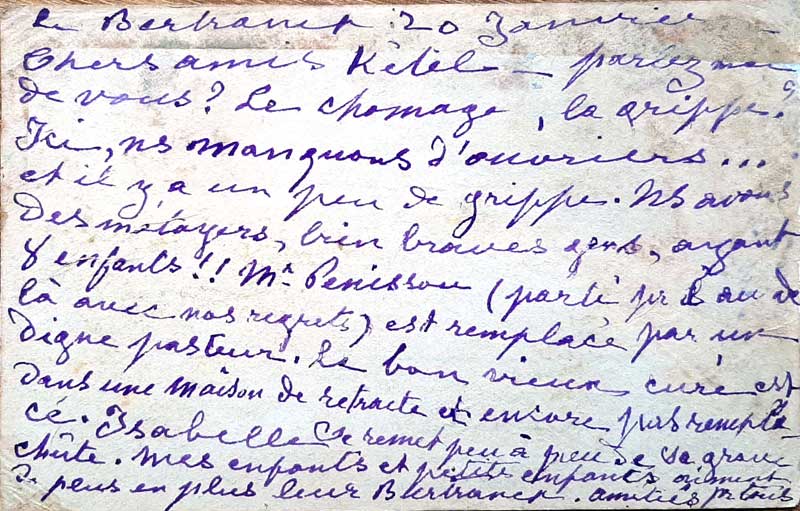 Le Bertranet 20 Janvier
Chers amis Kétél — parlez moi
de vous? Le chomage, la grippe?
Ici, ns manquons d'ouvriers...
et il y a un peu de grippe. Ns avons
des métayers, bien braves gens, ayant
8 enfants!! Mr Penisson (parti pr l'au de
là avec nos regrets) est remplacé par un
digne pasteur. Le bon vieux curé est
dans une maison de retraite et encore pas rempla
cé. Isabelle se remet peu à peu de sa grave
chûte. Mes enfants et petits enfants aiment
de peus en plus leur Bertranet. amitiés pr tous